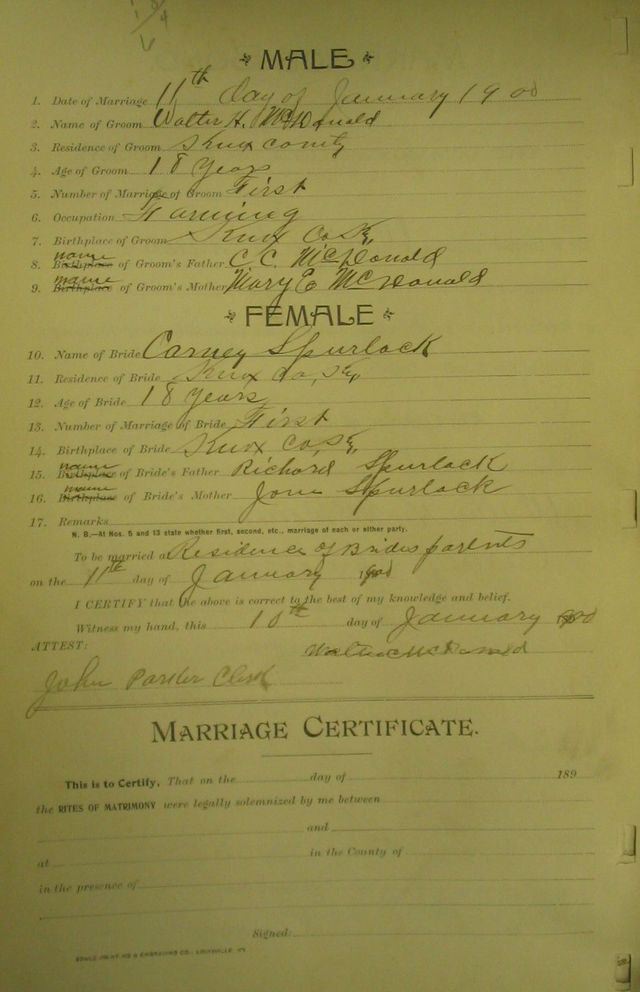 MALE
1. Date of Marriage 11th day of January 1900
2. Name of Groom Walter H. McDonald
3. Residence of Groom Knox County
4. Age of Groom 18 years
5. Number of Marriage of Groom First
6. Occupation Farming
7. Birthplace of Groom Knox Co Ky
8. name Birthplace of Groom's Father C. C. McDonald
9. name Birthplace of Groom's Mother Mary E McDonald
FEMALE
10. Name of Bride Carney Spurlock
11. Residence of Bride Knox Co, Ky,
12. Age of Bride 18 years
13. Number of Marriage of Bride First
14. Birthplace of Bride Knox Co, Ky,
15. name Birthplace of Bride's Father Richard Spurlock
16. name Birthplace of Bride's Mother Spurlock
17. Remarks
N. B.—At Nos. 5 and 13 state whether first, second, etc., marriage of each or either party.
To be married at Residence of Brides parents
on the 11th day of January 1900
I CERTIFY that the above is correct to the best of my knowledge and belief.
Witness my hand, this 10th day of January 1900
ATTEST:
Walter McDonald
John Parker Clerk
MARRIAGE CERTIFICATE.
This is to Certify, That on the day of 189
the RITES OF MATRIMONY were legally solemnized by me between
and
at in the County of
in the presence of
Signed:
& ENGRAVING CO., LOUISVILLE, KY.